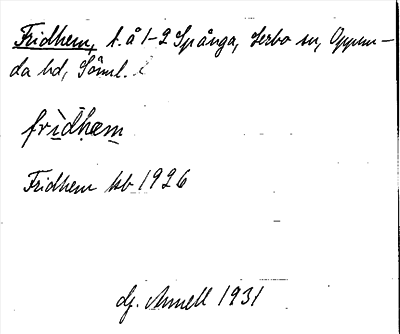 Fridhem, t. å 1-2 Spånga, Lerbo sn, Oppun-
da hd, Söml.
fridhem
Fridhem kb 1926
Hj. Annell 1931